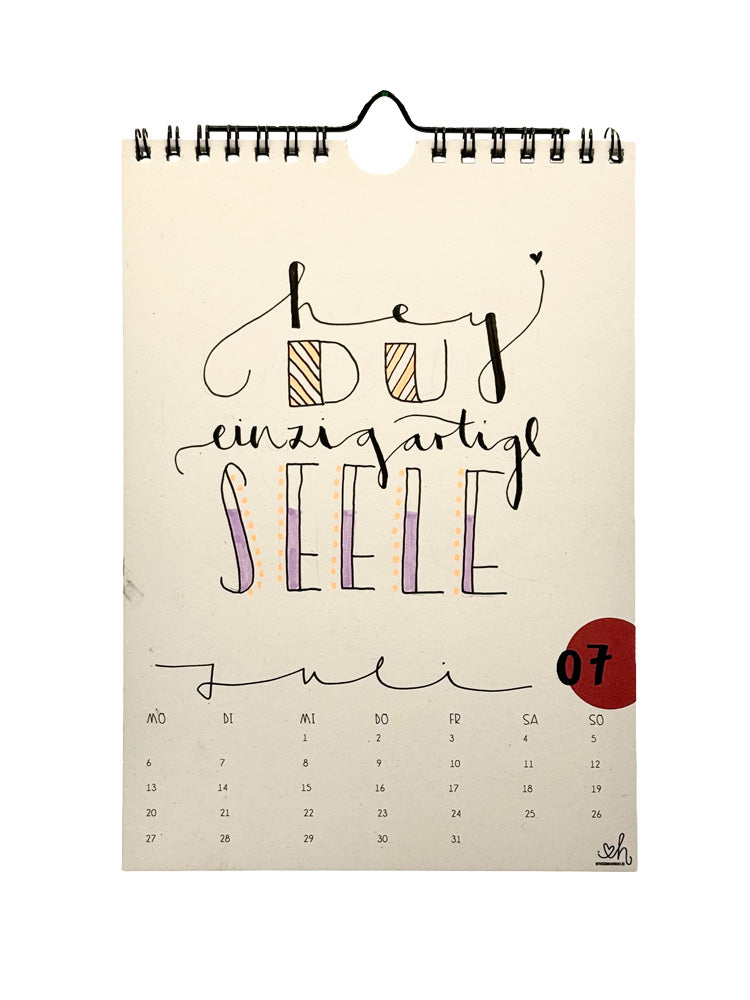 hey
DU
einzigartige
SEELE
Juli 07
MO DI MI DO FR SA SO
1 2 3 4 5
6 7 8 9 10 11 12
13 14 15 16 17 18 19
20 21 22 23 24 25 26
27 28 29 30 31
h